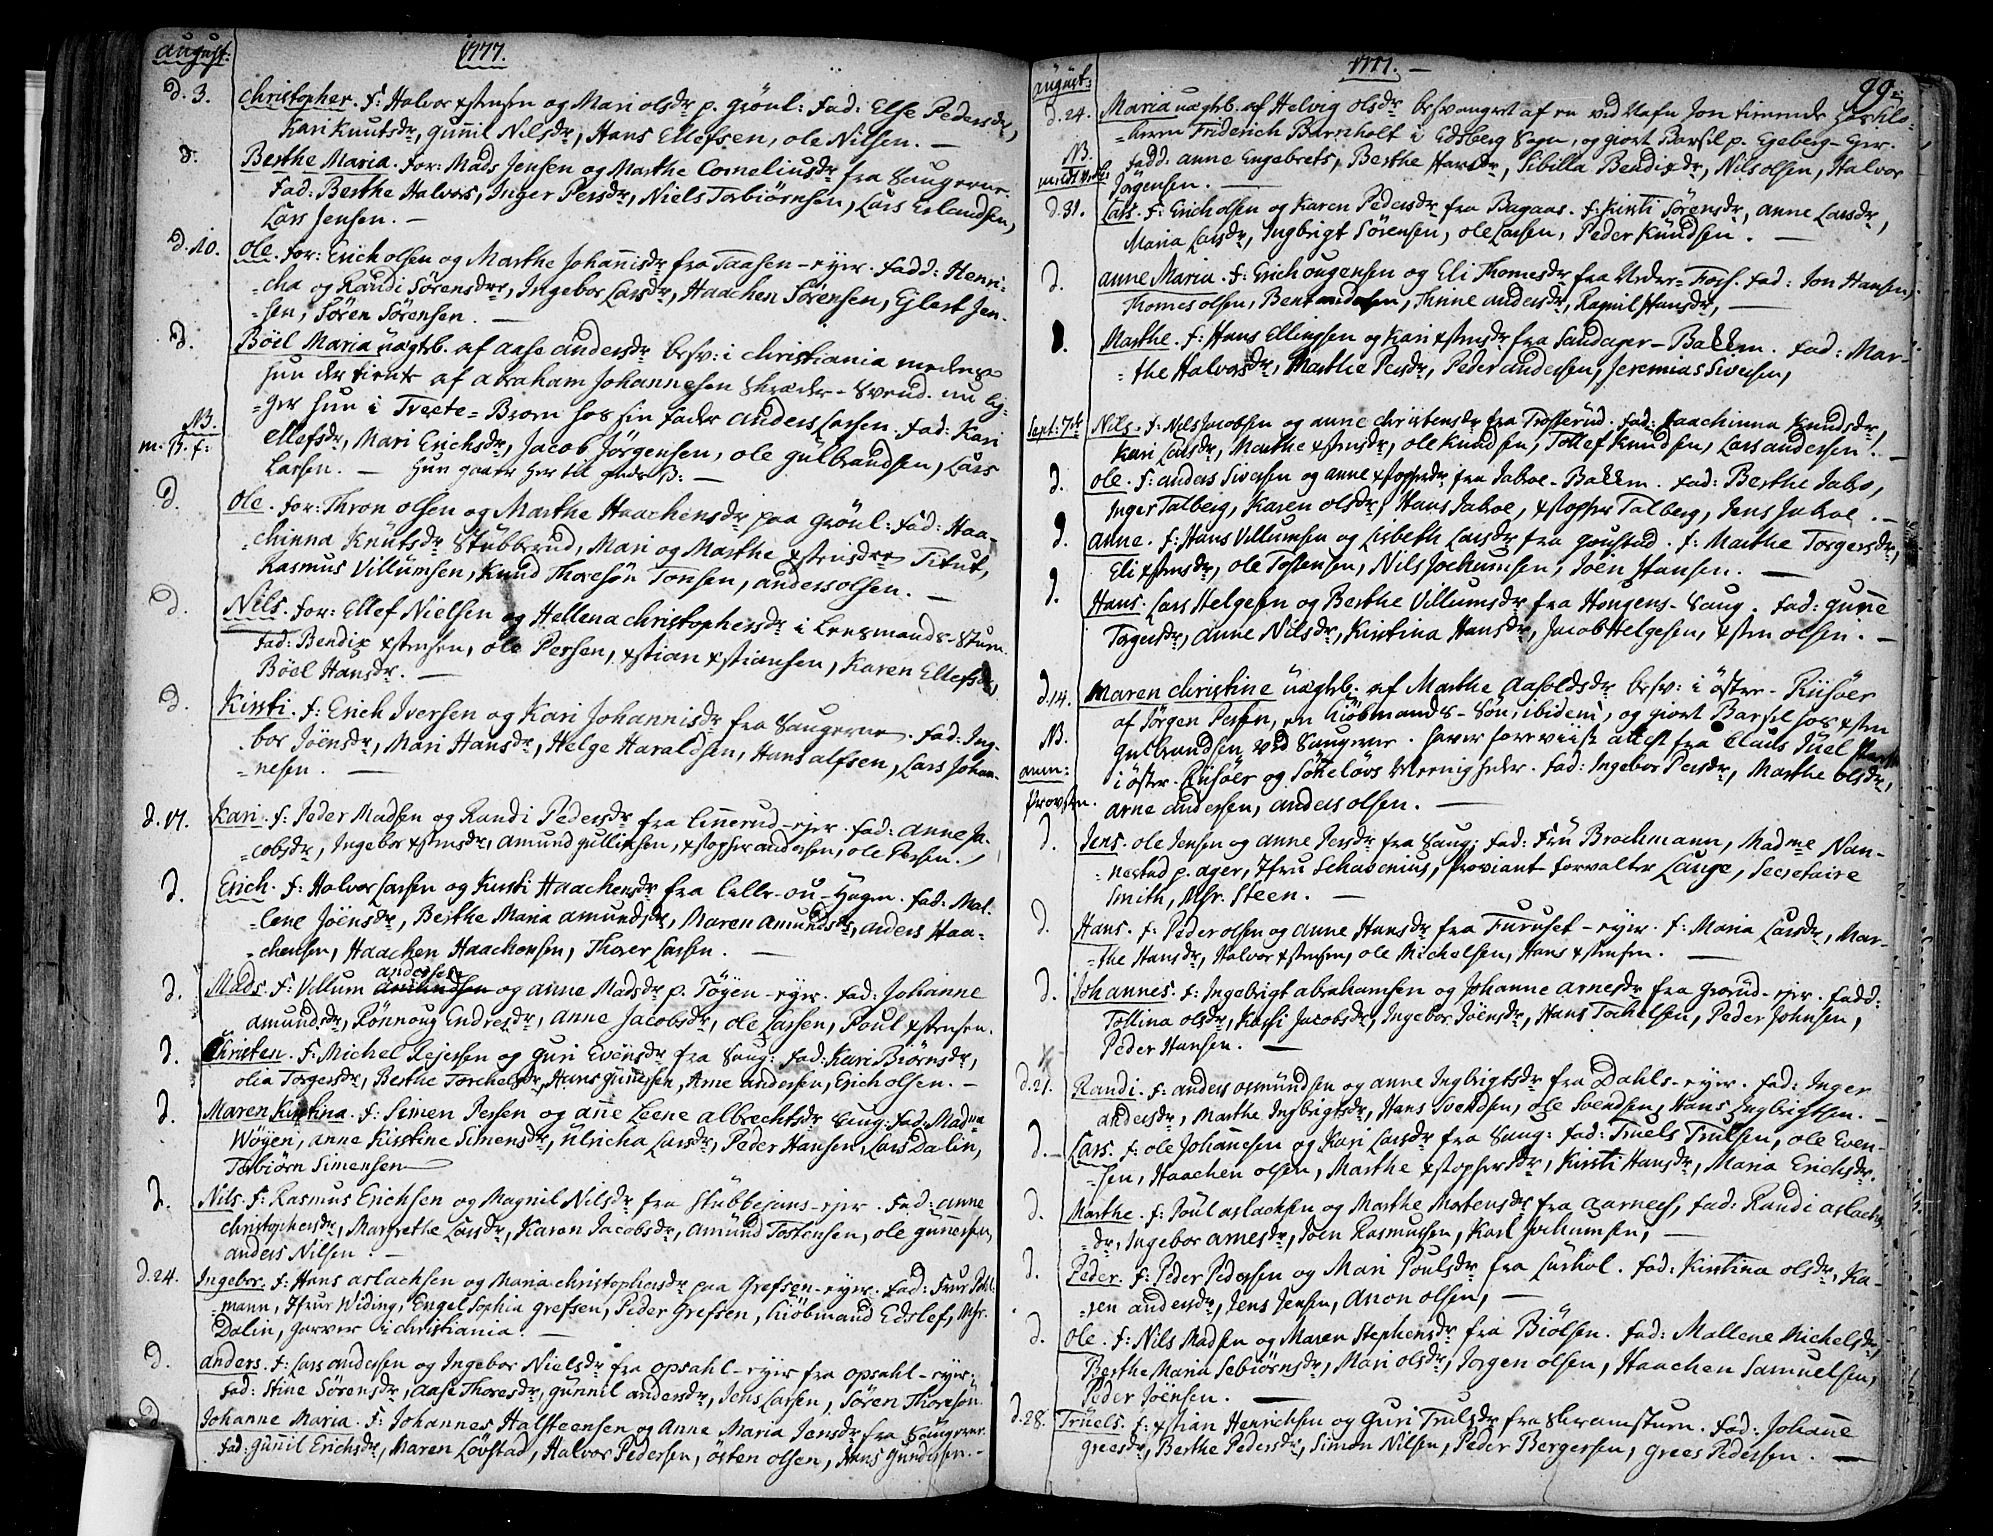 august: 1777.
d. 3. Christopher. f: Halvor xstensen og Mari olsdr p. Grönl: fad: Else Pedersdr,
Kari Knutsdr, Gunnil Nilsdr, Hans Ellefsen, ole Nilsen. —
d. Berthe Maria. for: Mads Jensen og Marthe Corneliusdr fra Saugerne
fad: Berthe Halvors, Inger Persdr, Niels Torbiörnsen, Lars Erlandsen,
Lars Jensen. —
d. 10. ole. for: Erich olsen og Marthe Johannisdr fra Taasen-ejer. fadd: Henri-
-cha og Randi Sörensdr, Ingebor Larsdr, Haachen Sörensen, Ejlert Jen-
-sen, Sören Sörensen. —
d. Böel Maria uægteb. af Aase andersdr besv: i Christiania medens
hun der tiente af abraham Johannesen Skræder-Svend. nu lig-
-ger hun i Treete-Broen hos sin fader anders Larsen. fad: Kari
NB.
m. B. f: ellefsdr, Mari Erichsdr, Jacob Jörgensen, ole gulbrandsen, Lars
Larsen. — hun gaaer her til
d ole. for: Thron olsen og Marthe Haachensdr paa Grönl: fad: Haa-
chinna Knütsdr Stübberud, Mari og Marthe xstensdr Titut,
Rasmus Villumsen, Knud Thoresön Tonsen, anders olsen. —
d. Nils. for: Ellef Nielsen og Hellena christophersdr i Lensmands-Stuen.
fad: Bendix xstensen, ole Persen, xstian xstiansen, Karen Ellefsdr,
Böel Hansdr. —
d. Kirsti. f: Erich Iversen og Kari Johannisdr fra Saugerne. fad: Ing-
bor Jöensdr, Mari Hansdr, Helge Haraldsen, Hans alfsen, Lars Johan-
-nesen. —
d. 17. Kari. f: Peder Madsen og Randi Pedersdr fra Linnerud-ejer. fad: anne Ja-
-cobsdr, Ingebor xstensdr, amund gullixsen, xstopher andersen, ole Persen.
d. Erich. f: Halvor Larsen og Kirsti Haachensdr fra Lille-ou-Hagen. fad: Mal-
-lene Jöensdr, Berthe Maria amundsdr, Maren amundsdr, anders Haa-
-chensen, Haachen Haachensen, Thorer Larsen. —
d. Mads. f: Villum andersen og anne Madsdr p. Töyen-ejer. fad: Johanne
amundsdr, Rönnoug Endresdr, anne Jacobsdr, ole Larsen, Poul xstensen.
d. Christen. f: Michel Rejersen og Guri Evensdr fra Saug: fad: Kari Biörnsdr,
olia Torgersdr, Berthe Torchelsdr, Hans gunnesen, Arne andersen, Erich olsen. —
d. Maren Kirstina. f: Simen Persen og anne Leene albrechtsdr Saug: fad: Madme
Wöyen, anne Kirstine Simensdr, Ulricha Larsdr, Peder Hansen, Lars Dalin,
Torbiörn Simensen
d. Nils. f: Rasmus Erichsen og Magnil Nilsdr fra Stubbejans-ejer. fad: anne
christophersdr, Margrethe Larsdr, Karen Jacobsdr, amund Tostensen, ole gunersen,
anders Nilsen —
d. 24. Ingebor. f: Hans aslachsen og Maria christophersdr paa Grefsen-ejer. fad: Frue
-mann, Jfrue Widing, Engel Sophia grefsen, Peder Grefsen, Kiöbmand Edslef, Mr.
Dalin, garver i christiania. —
d. anders. f: Lars andersen og Ingebor Nielsdr fra opsahl-ejer fra opsahl-ejer.
fad: Stine Sörensdr, Aase Thoresdr, gunnil andersdr, Jens Larsen, Sören Thoresön
d. Johanne Maria. f: Johannes Halsteensen og Anne Maria Jensdr fra Saugerne.
fad: gunnil Erichsdr, Maren Lövstad, Halvor Pedersen, östen olsen, Hans Gundersen. —
august: 1777. — 99.
d. 24. Maria uægteb. af Helvig olsdr besvangret af en ved Nafn Jon tienende
-herre Friderich Barnholt i Edsberg Sogn, og giort Barsel p. Egeberg-Ejer.
NB. fadd. anne Engebrets, Berthe Hansdr, Sibilla Bendixdr, Nils olsen, Halvor
Jörgensen. —
d. 31. Lars. f: Erich olsen og Karen Pedersdr fra Bagaas. f: Kirsti Sörensdr, anne Larsdr,
Maria Larsdr, Ingbrigt Sörensen, ole Larsen, Peder Knudsen. —
d. anne Maria. f: Erich ougensen og Eli Thomesdr fra Neder-Foss. fad: Jon Hansen,
Thomes olsen, Bent andersen, Thrine andersdr, Ragnil Hansdr, —
d. Marthe. f: Hans Ellingsen og Kari xstensdr fra Sandager-Bakken. fad: Mar-
-the Halvorsdr, Marthe Persdr, Peder andersen, Jeremias Siversen,
Sept: 7de Nils. f: Nils Jacobsen og anne christensdr fra Trosterud. fad: Haachinna Knudsdr,
Kari Larsdr, Marthe xstensdr, ole Knudsen, Tollef Knudsen, Lars andersen. —
d. ole. f: anders Siversen og anne xstophersdr fra Jaboe-Bakken. fad: Berthe Jabo,
Inger Talberg, Karen olsdr, Hans Jaboe, xstopher Talberg, Jens Jaboe. —
d. anne. f: Hans Villumsen og Lisbeth Larsdr fra Goustad. f: Marthe Torgersdr,
Eli xstensdr, ole Tostensen, Nils Jochumsen, Joen Hansen. —
d. Hans. Lars Helgesen og Berthe Villumsdr fra Hougens-Saug. fad: gunne
Torgersdr, anne Nilsdr, Kirstina Hansdr, Jacob Helgesen, xsten olsen. —
d. 14. Maren christine uægteb: af Marthe Aasoldsdr besv: i öster-Riisöer
af Jörgen Persen, en Kiöbmands-Sön, ibidem, og giort Barsel hos xsten
NB. gulbrandsen ved Saugerne. haver foreviist attest fra Claus Jüel
i öster-Riisöer og Söndelövs Menigheder. fad: Ingebor Persdr, Marthe olsdr,
arne andersen, anders olsen. —
d. Jens. ole Jensen og anne Persdr fra Saug: fad: Frü Brochmann, Madme Nan-
-nestad p. ager, Jfru Schavenius, Proviant-forvalter Lange, Secretaire
Smith, Mr. Steen. —
d. Hans. f: Peder olsen og anne Hansdr fra Furuset-ejer. f: Maria Larsdr, Mar-
-the Hansdr, Halvor xstensen, ole Michelsen, Hans xstensen. —
d. Johannes. f: Ingebrigt abrahamsen og Johanne arnesdr fra Grorud-ejer. fadd:
Tollina olsdr, Kirsti Jacobsdr, Ingebor Jöensdr, Hans Torkelsen, Peder Johnsen,
Peder Hansen. —
d. 21. Randi. f: anders asmundsen og anne Ingbrigtsdr fra Dahls-ejer. fad: Inger
andersdr, Marthe Ingbrigtsdr, Hans Svendsen, ole Svendsen, Hans Ingbrigtsen. —
d. Lars. f: ole Johannesen og Kari Larsdr fra Saug: fad: Truels Trulsen, ole Even-
-sen, Haachen olsen, Marthe xstophersdr, Kirsti Hansdr, Maria Erichsdr.
d. Marthe. f: Poul aslachsen og Marthe Mortensdr fra aarnees, fad: Randi aslachs-
-dr, Ingebor arnesdr, Joen Rasmussen, Karl Jochumsen, —
d. Peder. f: Peder Pedersen og Mari Poulsdr fra Lürhol. fad: Kirstina olsdr, Ka-
-ren andersdr, Jens Jensen, Anon olsen, —
d. ole. f: Nils Madsen og Maren Stephensdr fra Biölsen. fad: Mallene Michelsdr,
Berthe Maria Sebiörnsdr, Mari olsdr, Jorgen olsen, Haachen Samuelsen,
Peder Jöensen. —
d. 28. Trüels. f: xstian Henrichsen og Guri Trulsdr fra Skramstuen. fad: Johanne
greesdr, Berthe Pedersdr, Simon Nilsen, Peder Bergersen, Grees Pedersen. —